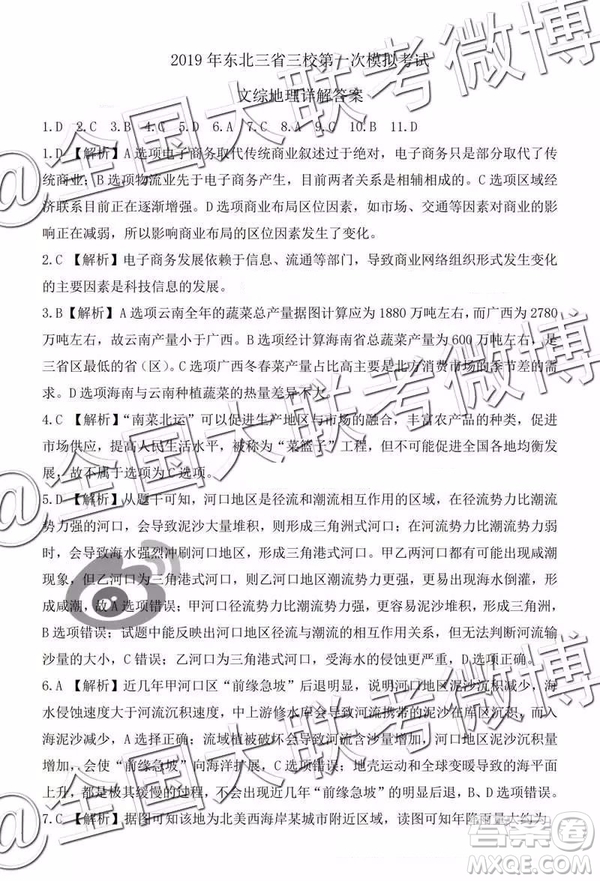 2019 年东北三省三校第一次模拟考试
文综地理详解答案
1.D 2.C 3.B 4.C 5.D 6.A 7.C 8.A 9.C 10.B 11.D
1.D 【解析】A 选项电子商务取代传统商业叙述过于绝对，电子商务只是部分取代了传
统商业；B 选项物流业先于电子商务产生，目前两者关系是相辅相成的。C 选项区域经
济联系目前正在逐渐增强。D 选项商业布局区位因素，如市场、交通等因素对商业的影
响正在减弱，所以影响商业布局的区位因素发生了变化。
2.C 【解析】电子商务发展依赖于信息、流通等部门，导致商业网络组织形式发生变化
的主要因素是科技信息的发展。
3.B【解析】A 选项云南全年的蔬菜总产量据图计算应为 1880 万吨左右，而广西为 2780
万吨左右，故云南产量小于广西。B 选项经计算海南省总蔬菜产量为 600 万吨左右，是
三省区最低的省（区）。C 选项广西冬春菜产量占比高主要是北方消费市场的季节差的需
求。D 选项海南与云南种植蔬菜的热量差异不大。
4.C 【解析】“南菜北运”可以促进生产地区与市场的融合，丰富农产品的种类，促进
市场供应，提高人民生活水平，被称为“菜篮子”工程，但不可能促进全国各地均衡发
展，故不属于选项为 C 选项。
5.D【解析】从题干可知，河口地区是径流和潮流相互作用的区域，在径流势力比潮流
势力强的河口，会导致泥沙大量堆积，形成三角洲式河口，在径流势力比潮流势力弱
时，会导致海水强烈冲刷河口地区，形成三角港式河口。甲乙两河口都有可能出现咸潮
现象，但乙河口为三角港式河口，则乙河口地区潮流势力更强，更易出现海水倒灌，形
成咸潮，故 A 选项错误；甲河口径流势力比潮流势力更强，更易出现泥沙堆积，形成三角洲，
B 选项错误；试题中能反映出河口地区径流与潮流势力的强弱，但无法判断河流输
沙量的大小，C 错误；乙河口为三角港式河口，受海水的侵蚀更严重，D 正确。
6.A 【解析】近几年甲河口区“前缘急坡”后退明显，说明河口区泥沙沉积减少，海
水侵蚀速度大于河流沉积速度，中上游修水库会导致河流携带的泥沙在库区沉积，而入
海泥沙减少，A 选择正确；流域植被破坏会导致入海泥沙增多，而河口地区泥沙沉积量
增加，会使“前缘急坡”向海洋扩展，B、C 选项错误；地壳运动和全球变暖导致的海平面
上升，都是极其缓慢的过程，不可能导致近几年“前缘急坡”后退明显，D 错误。
7.C 【解析】据图可知该地为北美西海岸某城市附近区域，读图可知年降雨量大约为
@全国大联考微博
@全国大联考微博
@全国大联考微博
答案卷